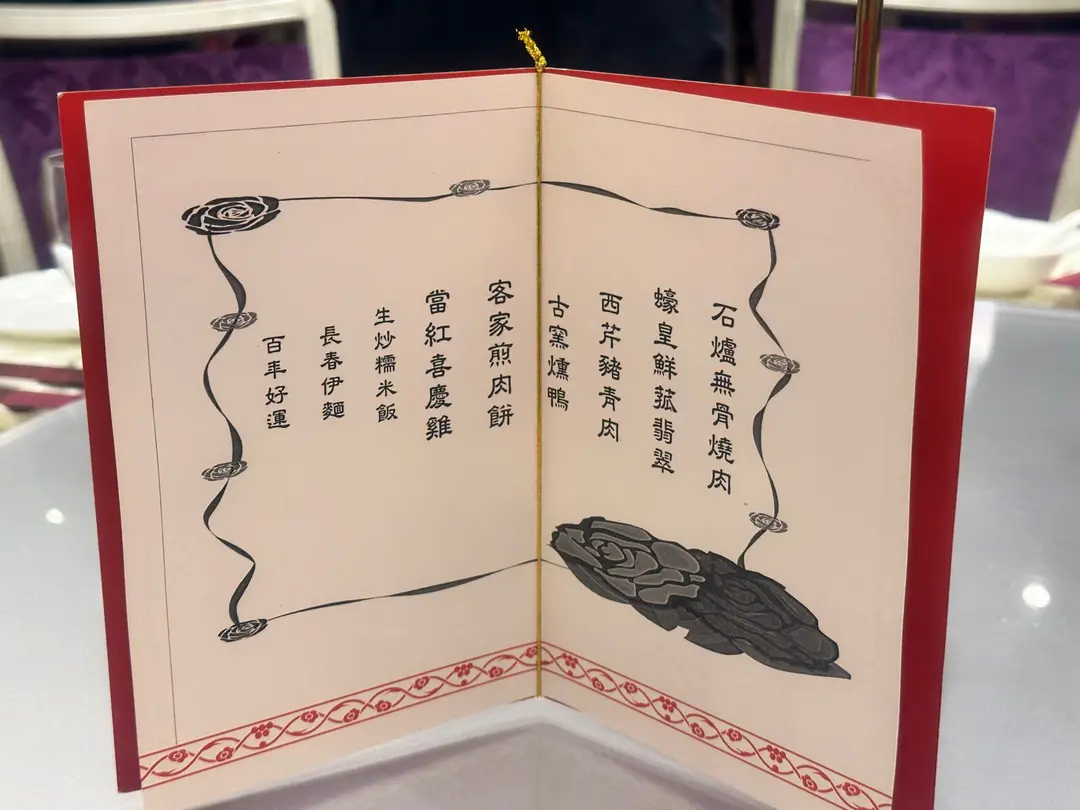 石爐無骨燒肉
蠔皇鮮菰翡翠
西芹豬青肉
古窯燻鴨
客家煎肉餅
當紅喜慶雞
生炒糯米飯
長春伊麵
百年好運